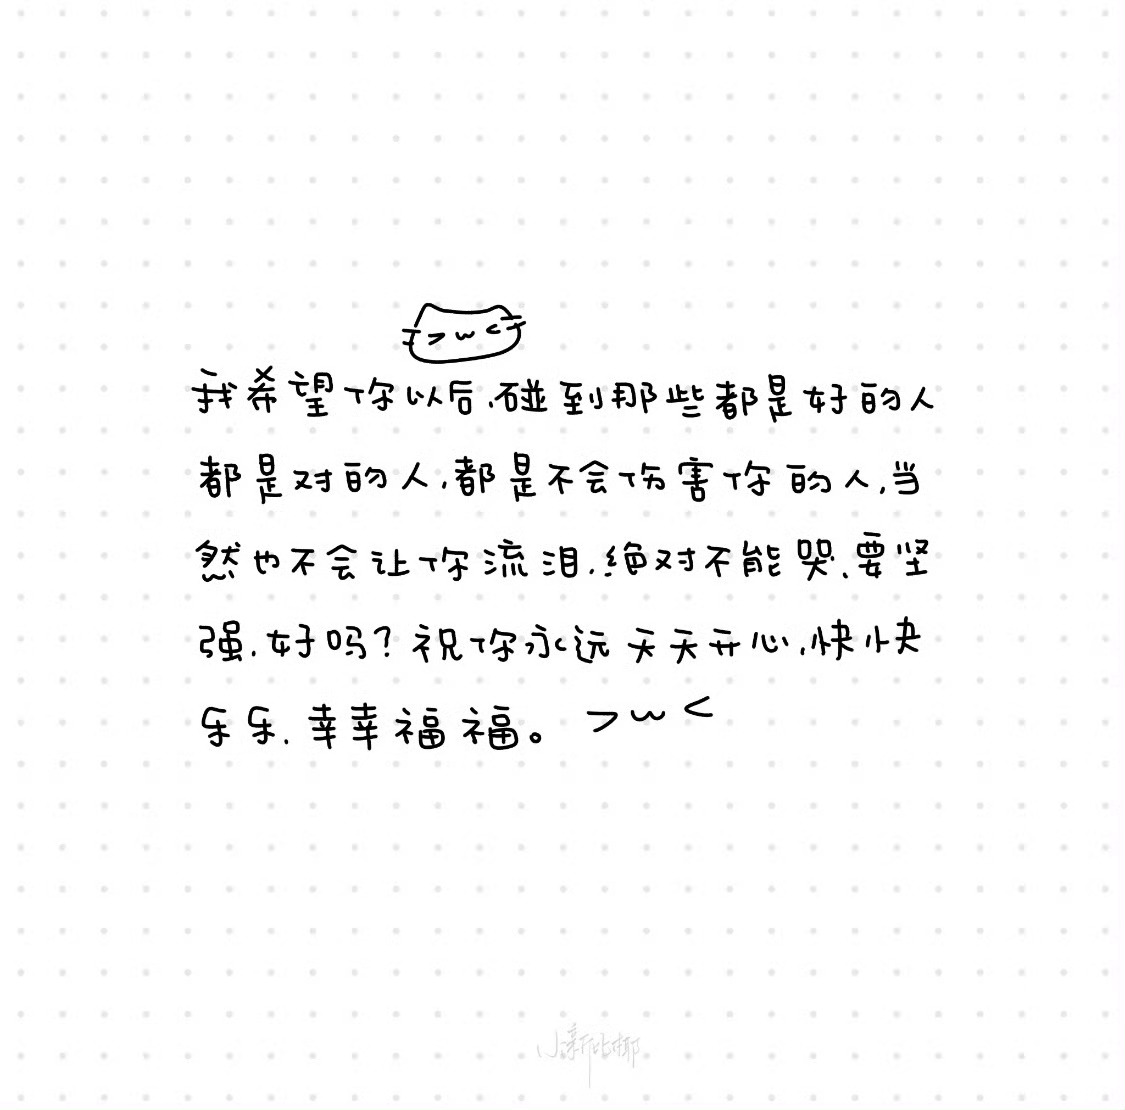 >w<
我希望你以后,碰到那些都是好的人
都是对的人,都是不会伤害你的人,当
然也不会让你流泪,绝对不能哭,要坚
强,好吗?祝你永远天天开心,快快
乐乐,幸幸福福。 >w<